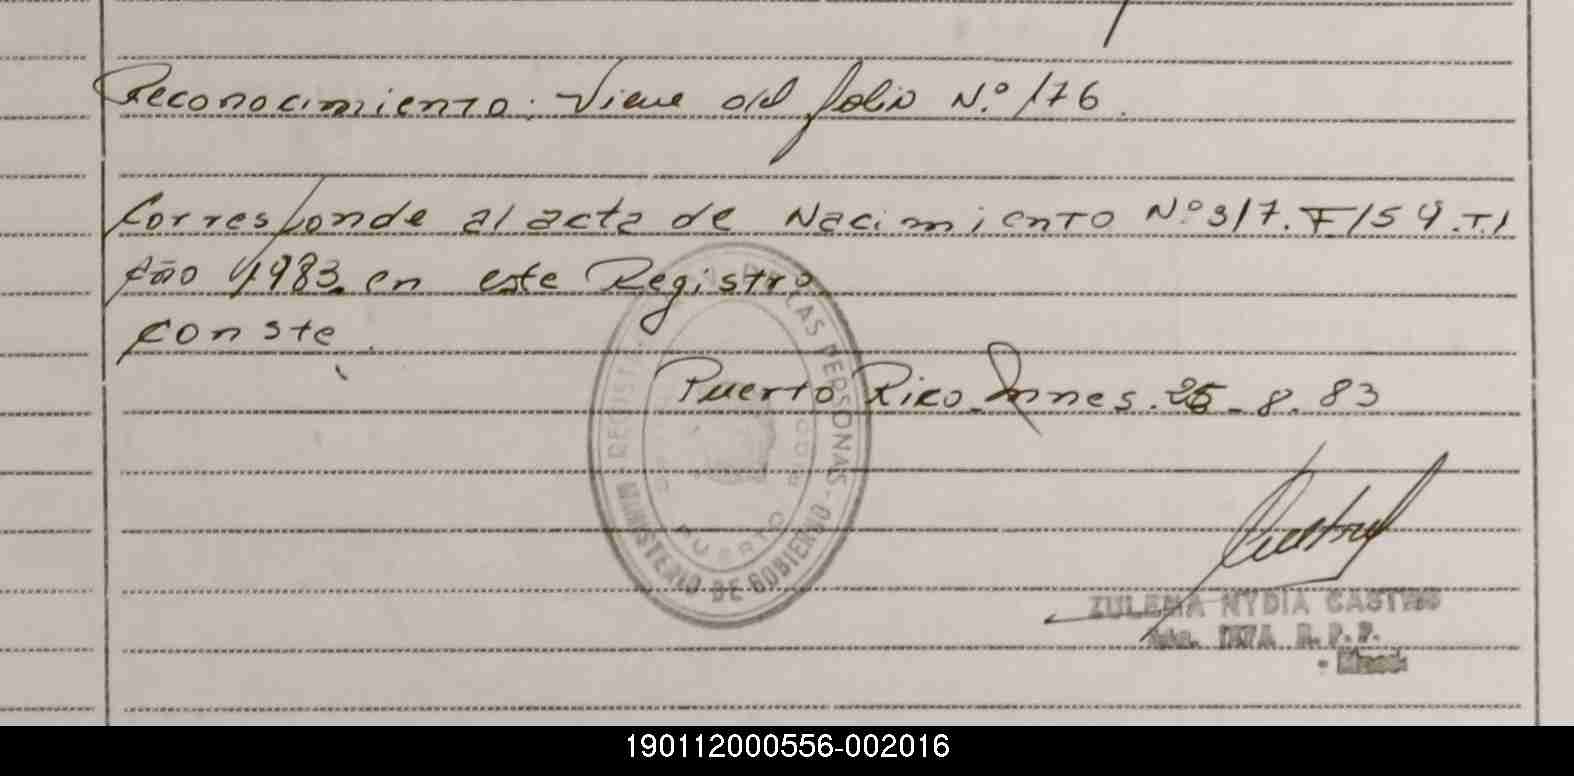 Reconocimiento: Viene del folio N.º 176.
Corresponde al acta de Nacimiento Nº 317. F/159.T.1
Año 1983. en este Registro
Conste.
Puerto Rico. Mnes. 25-8.83
REGISTRO PERSONAS - MINISTERIO DE GOBIERNO -
PUERTO
ZULEMA NYDIA CASTRO
R.P.P.
190112000556-002016